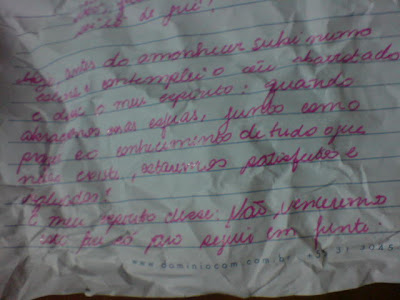 isso de quê?
Hoje antes do amanhecer subi numa
colina e contemplei o céu abarrotado
e disse a meu espírito: quando
abraçarmos essas esferas, junto com o
prazer e o conhecimento de tudo o que
nelas existe, estaremos satisfeitos e
E meu espírito disse: Não, venceremos
isso só pra seguir em frente.
www.dominiocom.com.br +55 31 3045